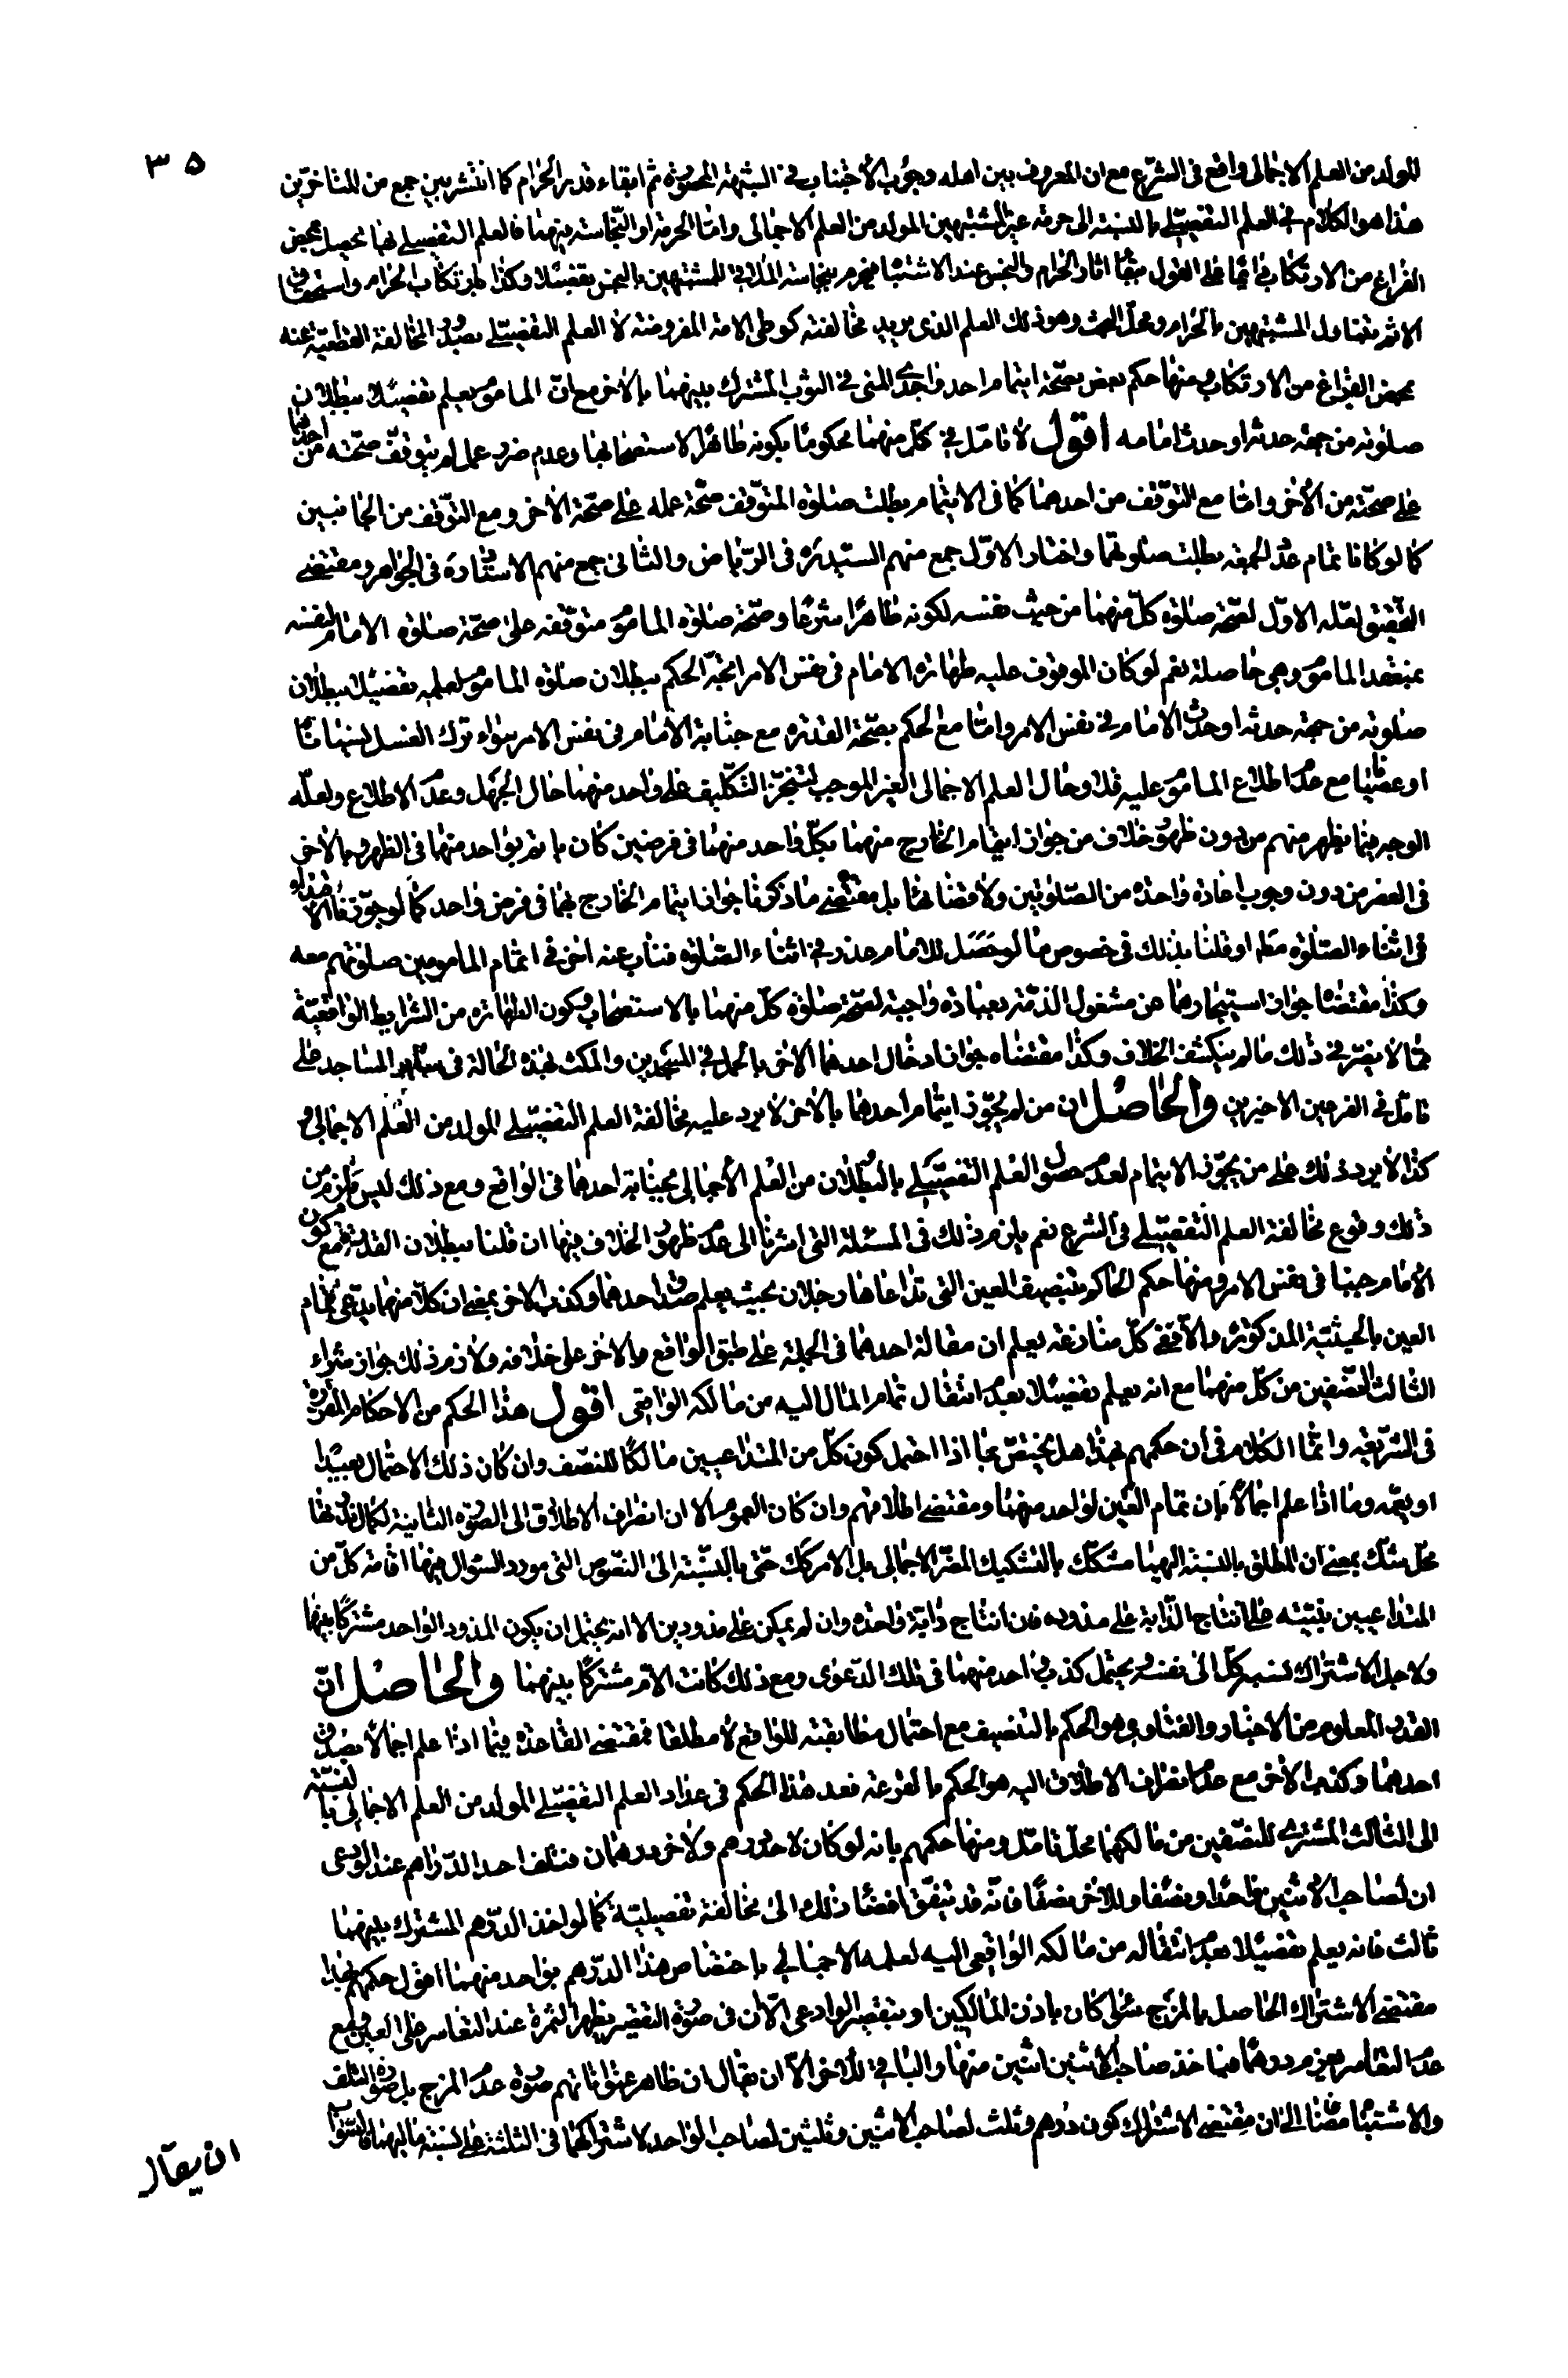 ۳۵
المولد من العلم الاجمالی واقع فی الشرع مع ان المعروف بین اهله وجوب الاجتناب فی الشبهة المحصورة ثم ابقاء قدر الحرام کما انتشر بین جمع من المتاخرین
هذا هو الکلام فی العلم التفصیلی بالنسبة الی حرمة عین المشتبهین المولد من العلم الاجمالی واما الحرمة او النجاسة بینهما فالعلم التفصیلی بهما یحصل بمحض
الفراغ من الارتکاب علی القول اثار الحرام والنجس عند الاشتباه بنجاسة الملاقی للمشتبهین بالنجس تفصیلا وکذا بارتکاب الحرام واستحقاق
الاثم بتناول المشتبهین بالحرام ومحل البحث وهو ذلک العلم الذی یرید مخالفته کوطی الامة المفروضة لا العلم التفصیلی بصدور المخالفة القطعیة عنه
بمحض الفراغ من الارتکاب ومنها حکم بعض بصحة ایتمام احد واجدی المنی فی الثوب المشترک بینهما بالاخر مع ان الماموم یعلم تفصیلا ببطلان
صلوته من جهة حدثه او حدث امامه اقول لا تامل فی کل منهما محکوما بکونه طاهرا لاستصحابها وعدم ضرر عمل لم یتوقف صحته من احدهما
علی صحته من الاخر واما مع التوقف من احدهما کما فی الایتمام بطلت صلوة المتوقف صحة عمله علی صحة الاخر ومع التوقف من الجانبین
کما لو کانا تمام عدد الجمعة بطلت صلوتهما واختار الاول جمع منهم السید ره فی الریاض والثانی جمع منهم الاستاد ره فی الجواهر ومقتضی
التحقیق لعله الاول لصحة صلوة کل منهما من حیث نفسه لکونه طاهرا شرعا وصحة صلوة الماموم متوقفة علی صحة صلوة الامام لنفسه
بمعتقد الماموم وهی حاصلة نعم لو کان الموقوف علیه طهارة الامام فی نفس الامر اتجه الحکم ببطلان صلوة الماموم لعلمه تفصیلا ببطلان
صلوته من جهة حدثه او حدث الامام فی نفس الامر واما مع الحکم بصحة القدوة مع جنابة الامام فی نفس الامر سواء ترک الغسل نسیانا
او عصیانا مع عدم اطلاع الماموم علیه فلا وحال العلم الاجمالی الغیر الموجب لتنجز التکلیف علی واحد منهما حال الجهل وعدم الاطلاع ولعله
الوجه فیما یظهر منهم من دون ظهور خلاف من جواز ایتمام الخارج منهما بکل واحد منهما فی فرضین کان یاتم بواحد منهما فی الظهر وبالاخر
فی العصر من دون وجوب اعادة واحدة من الصلوتین ولا قضائها بل مقتضی ما ذکرنا جواز ایتمام الخارج بهما فی فرض واحد کما لو جوزنا
فی اثناء الصلوة مطم او قلنا بذلک فی خصوص ما لو حصل للامام عذر فی اثناء الصلوة فناب عنه اخر فی اتمام المامومین صلوتهم معه
وکذا مقتضاه جواز استیجارهما عن مشغول الذمة بعبادة واجبة لصحة صلوة کل منهما بالاستصحاب وکون الطهارة من الشرایط الواقعیة
مما لا یضر فی ذلک ما لم ینکشف الخلاف وکذا مقتضاه جواز ادخال احدهما الاخر بالحمل فی المسجدین والمکث بهذه الحالة فی سایر المساجد علی
تامل فی الفرعین الاخیرین والحاصل ان من لم یجوز ایتمام احدهما بالاخر لا یرد علیه مخالفة العلم التفصیلی المولد من العلم الاجمالی و
کذا لا یرد ذلک علی من یجوز الایتمام لعدم حصول العلم التفصیلی بالبطلان من العلم الاجمالی بجنابة احدهما فی الواقع ومع ذلک لیس من
ذلک وقوع مخالفة العلم التفصیلی فی الشرع نعم یلزم ذلک فی المسئلة التی اشرنا الی عدم ظهور الخلاف فیها ان قلنا ببطلان القدوة مع کون
الامام جنبا فی نفس الامر ومنها حکم الحاکم بتنصیف العین التی تداعاها رجلان بحیث یعلم صدق احدهما وکذب الاخر بمعنی ان کلا منهما یدعی تمام
العین بالحیثیة المذکورة والا ففی کل منازعة یعلم ان مقالة احدهما فی الجملة علی طبق الواقع والاخر علی خلافه ولازم ذلک جواز شراء
الثالث النصفین من کل منهما مع انه یعلم تفصیلا بعدم انتقال تمام المال الیه من مالکه الواقعی اقول هذا الحکم من الاحکام المقررة
فی الشریعة وانما الکلام فی ان حکمهم بهذا هل یختص بما اذا احتمل کون کل من المتداعیین مالکا للنصف وان کان ذلک الاحتمال بعیدا
او یعمه وما اذا علم اجمالا بان تمام العین لواحد منهما ومقتضی اطلاقهم وان کان العموم الا ان انصراف الاطلاق الی الصورة الثانیة لکمال ندرتها
محل شک بمعنی ان المطلق بالنسبة الیهما مشکک بالتشکیک المضر الاجمالی بل الامر کک حتی بالنسبة الی النصوص التی مورد السؤال فیها اقامة کل من
المتداعیین بینته علی انتاج الدابة علی مذوده فان انتاج دابة واحدة وان لم یمکن علی مذودین الا انه یحتمل ان یکون المذود الواحد مشترکا بینهما
ولاجل الاشتراک نسبه کل الی نفسه ویحتمل کذب واحد منهما فی تلک الدعوی ومع ذلک کانت الام مشترکا بینهما والحاصل ان
القدر المعلوم من الاخبار والفتاوی هو الحکم بالتنصیف مع احتمال مطابقته للواقع لا مطلقا فمقتضی القاعدة فیما اذا علم اجمالا بصدق
احدهما وکذب الاخر مع عدم انصراف الاطلاق الیه هو الحکم بالقرعة فعد هذا الحکم فی عداد العلم التفصیلی المولد من العلم الاجمالی بالنسبة
الی الثالث المشتری للنصفین من مالکهما محل تامل ومنها حکمهم بانه لو کان لاحد درهم ولاخر درهمان فتلف احد الدراهم عند الودعی
ان لصاحب الاثنین واحدا ونصفا وللاخر نصفا فانه قد یتفق افضاء ذلک الی مخالفة تفصیلیة کما لو اخذ الدرهم المشترک بینهما
ثالث فانه یعلم تفصیلا بعدم انتقاله من مالکه الواقعی الیه لعلمه الاجمالی باختصاص هذا الدرهم بواحد منهما اقول حکمهم بهذا
مقتضی الاشتراک الحاصل بالمزج سواء کان باذن المالکین او بتقصیر الوادعی الا ان فی صورة التقصیر یظهر الثمرة عند التعاسر علی العین ومع
عدم التعاسر یغرم درهما فیاخذ صاحب الاثنین اثنین منها والباقی للاخر الا ان یقال ان ظاهر عنواناتهم صورة عدم المزج بل صورة التلف
والاشتباه مضافا الی ان مقتضی الاشتراک کون درهم وثلث لصاحب الاثنین وثلثین لصاحب الواحد لاشتراکهما فی الثلثة علی نسبة مالیهما
ان یقال